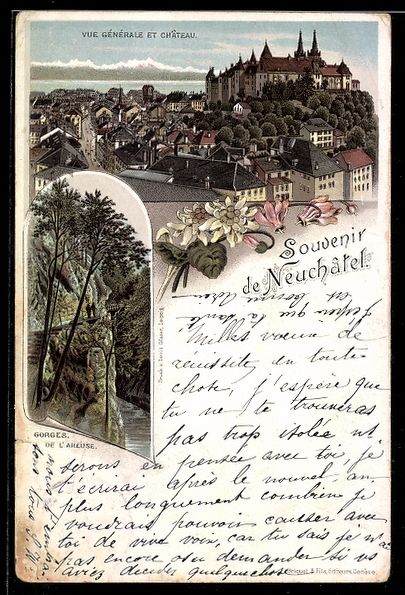 VUE GÉNÉRALE ET CHÂTEAU.
Souvenir
de Neuchâtel.
GORGES
DE L'AREUSE.
Druck v. Louis Glaser, Leipzig
J'espère que la santé
est bonne
Mille vœux de
réussite en toute
chose, j'espère que
tu ne te trouveras
pas trop isolée nt
serons en pensée avec toi, je
t'écrirai après le nouvel an
plus longuement combien je
voudrais pouvoir causer avec
toi de vive voix, car tu sais je n'ai
pas encore osé demander si vs
aviez décidé quelquechose
& Fils, Editeurs, Genève.